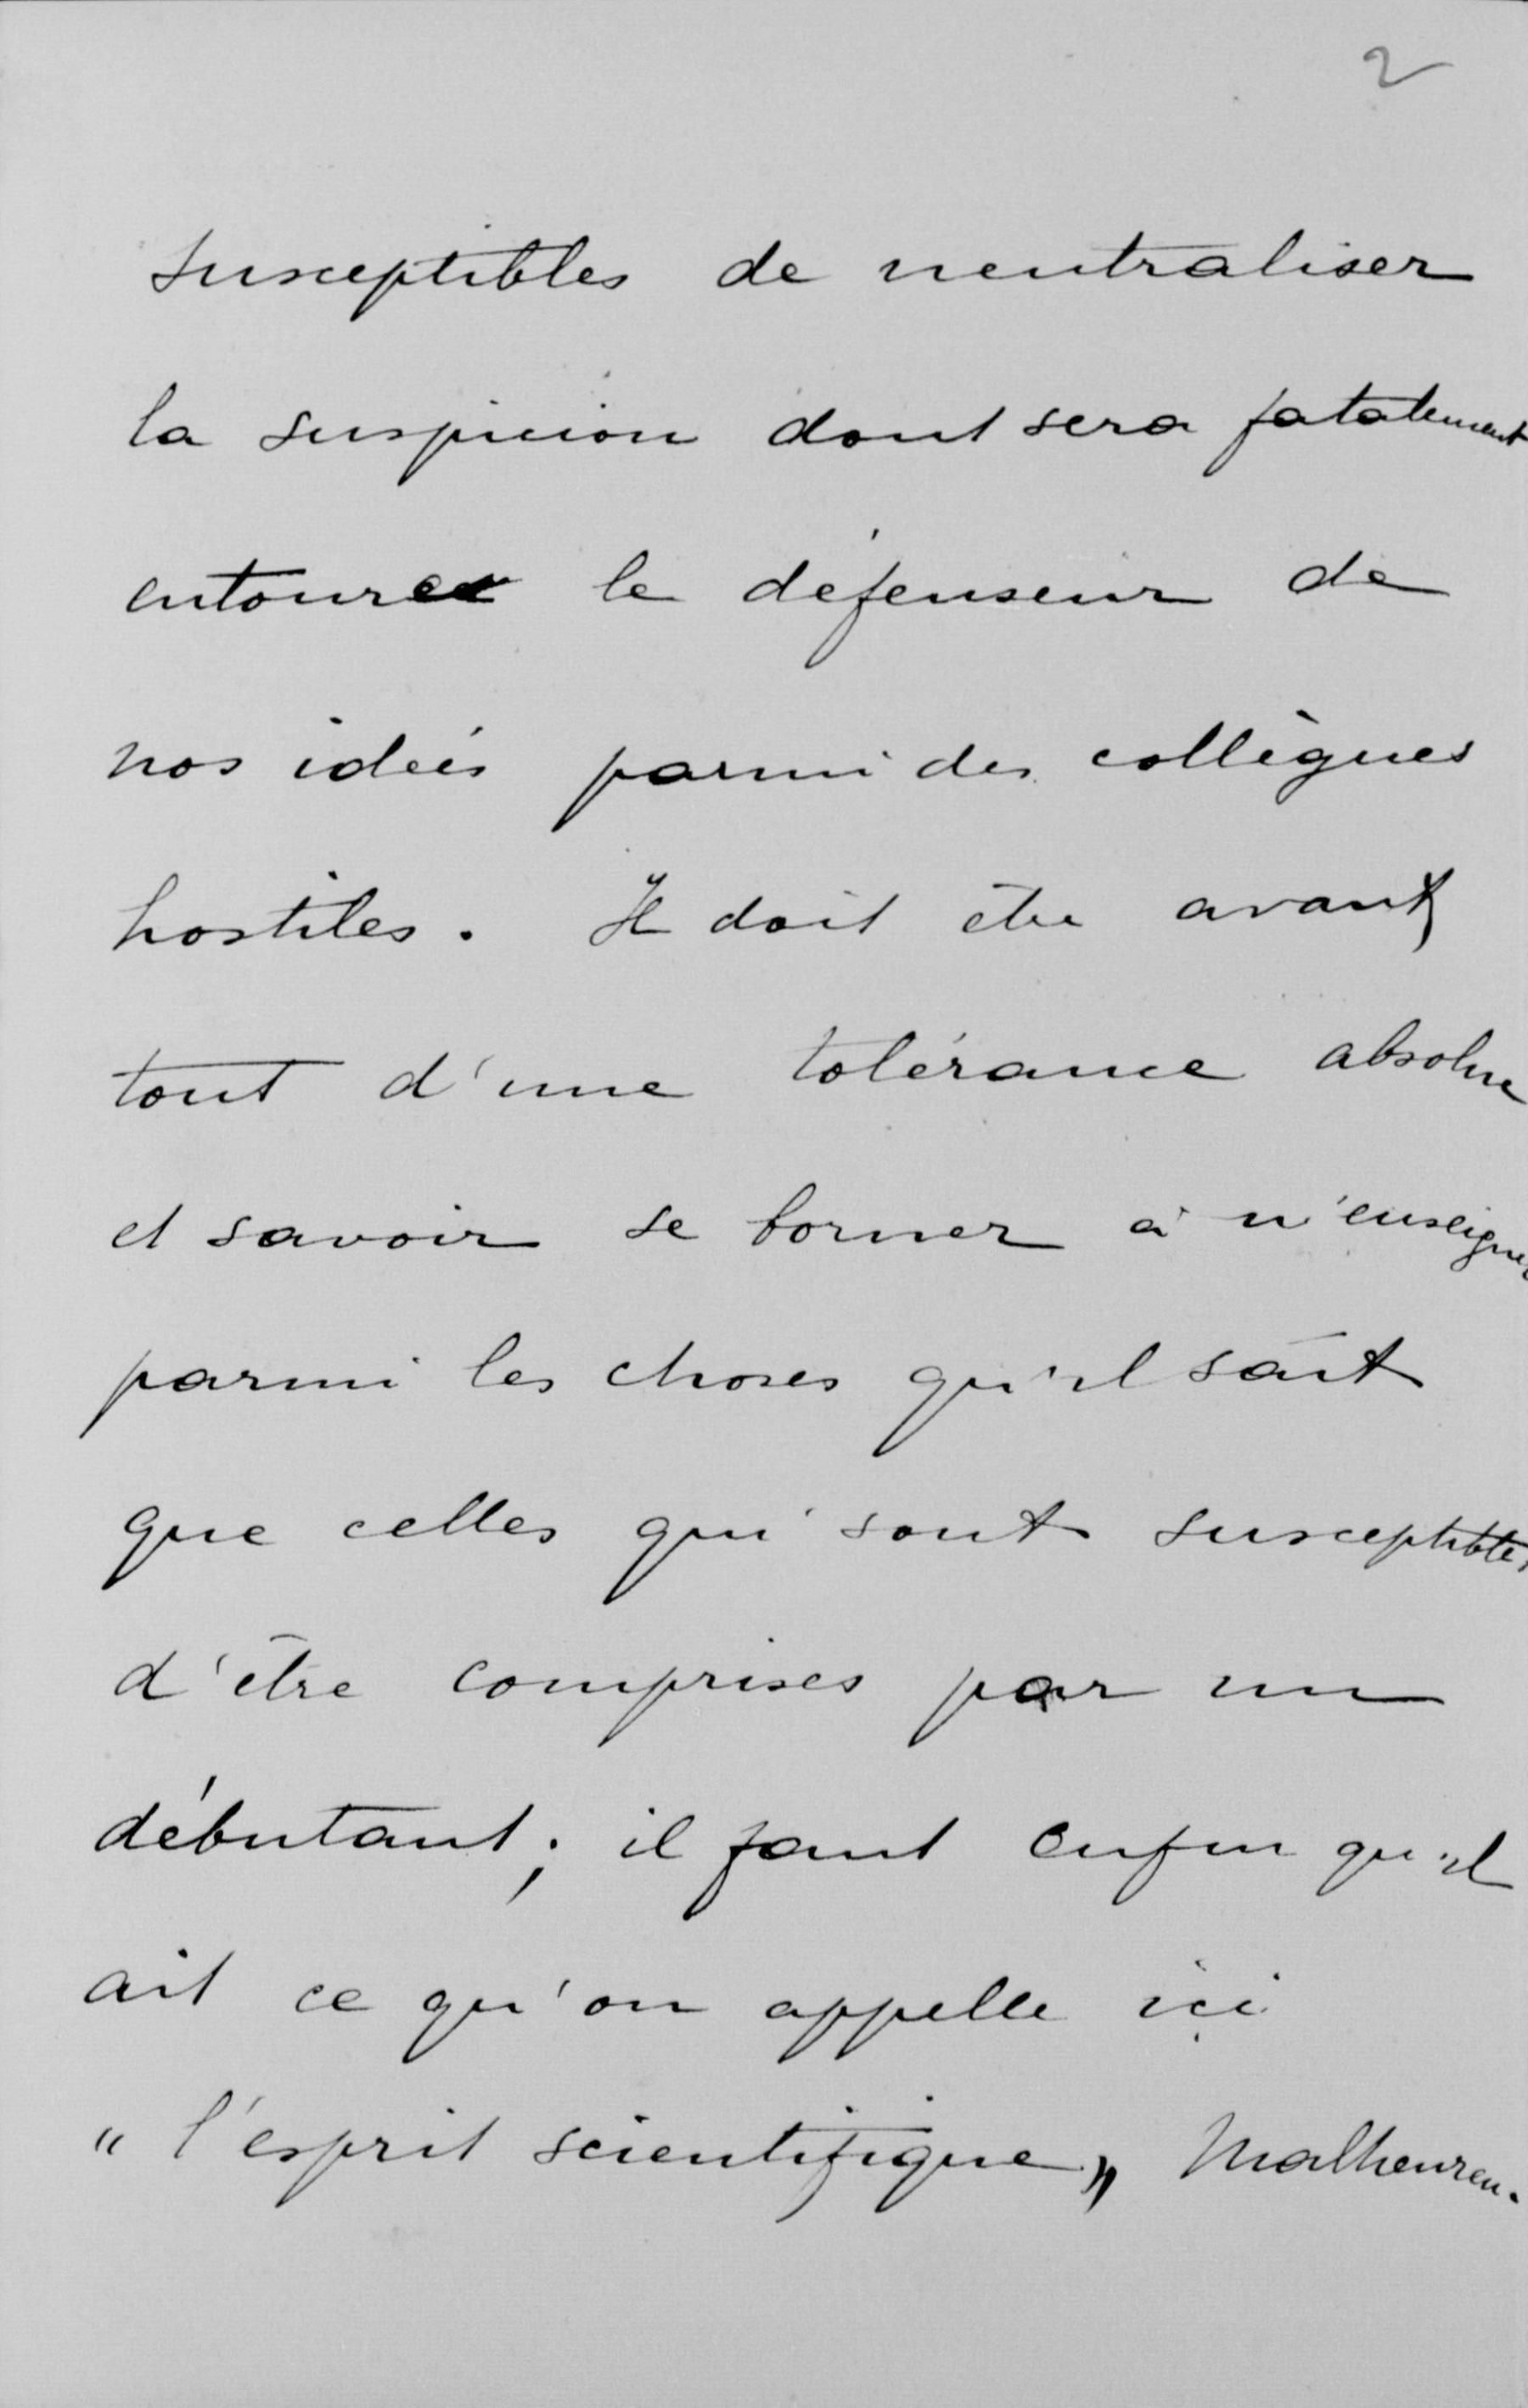 2
susceptibles de neutraliser
la suspicion dont sera fatalement
entouré le défenseur de
nos idées parmi des collègues
hostiles. Il doit être avant
tout d'une tolérance absolue
et savoir se borner à n'enseigner
parmi les choses qu'il sait
que celles qui sont susceptibles
d'être comprises par un
débutant; il faut enfin qu'il
ait ce qu'on appelle ici
"l'esprit scientifique" Malheureu-